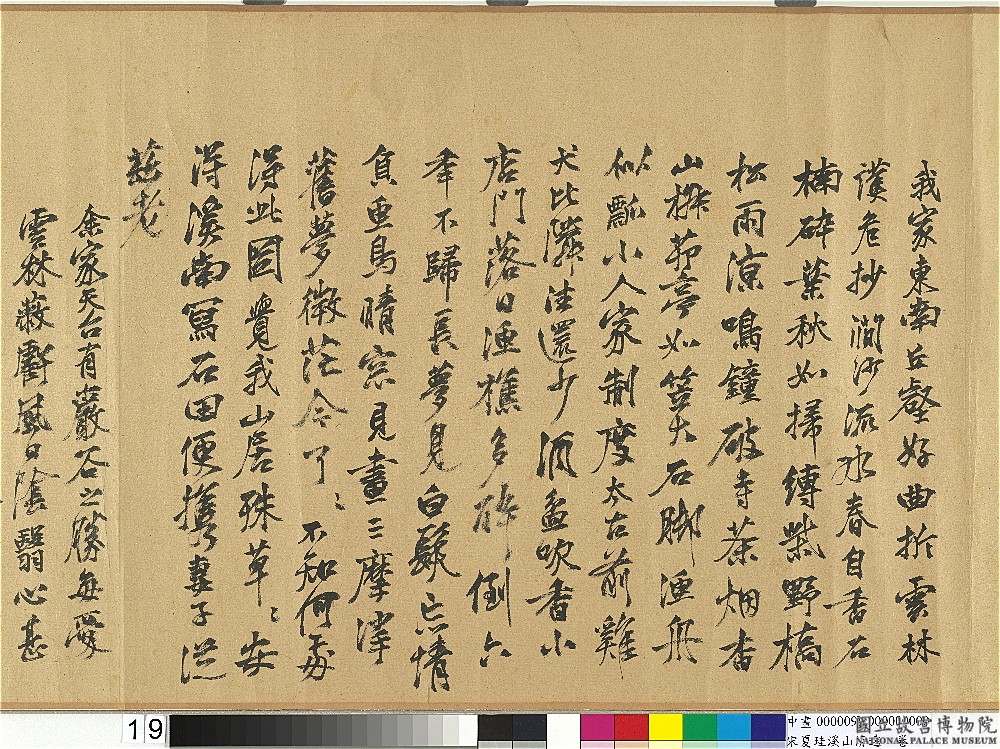 我家東南丘壑好曲折雲林
護危抄澗沙流水春自香石
楠碎葉秋如掃縛柴野橋
松雨涼鳴鐘破寺茶烟杳
山 茆亭如笠大石脚漁舟
似瓢小人家制度太古前雞
犬比隣往還少酒盂吹香小
店門落日漁樵多醉倒六
年不歸長夢見白髮忘情
負魚鳥晴窓見畫三摩挲
舊夢微茫令了〻不知何處
得此圖覺我山居殊草〻安
得溪南寫石田便携妻子從
茲老
余家天台有巖谷之勝每愛
雲林蔽虧風日陰翳心甚
19
國立故宮博物院
NATIONAL PALACE MUSEUM